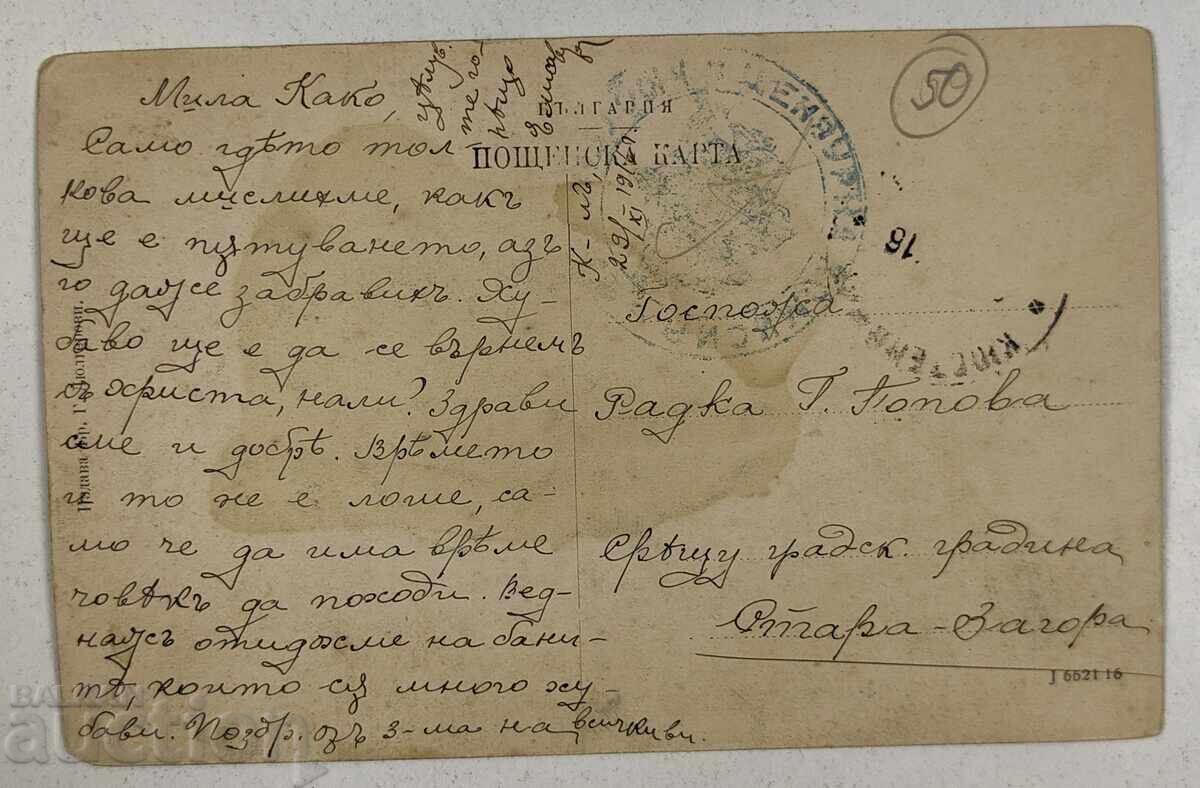 Мила Како,
Само гдѣто тол-
кова мислихме, какъ
ще е пѫтуването, азъ
го даже забравихъ. Ху-
баво ще е да се върнемъ
съ Христа, нали? Здрави
сме и добрѣ. Врѣмето
и то не е лоше, са-
мо че да има врѣме
човѣкъ да походи. Вед-
нажъ отидохме на бани-
тѣ, които сѫ много ху-
бави. Поздр. отъ 3-ма на всички ви.
цѣлув.
те го-
рѣщо
БЪЛГАРИЯ
ПОЩЕНСКА КАРТА
К-лъ,
29/XI-19
50
16
КЮСТЕН
Госпожа
Радка Г. Попова
Срѣщу градск. градина
Стара-Загора
J 6521 16
Издава
auction